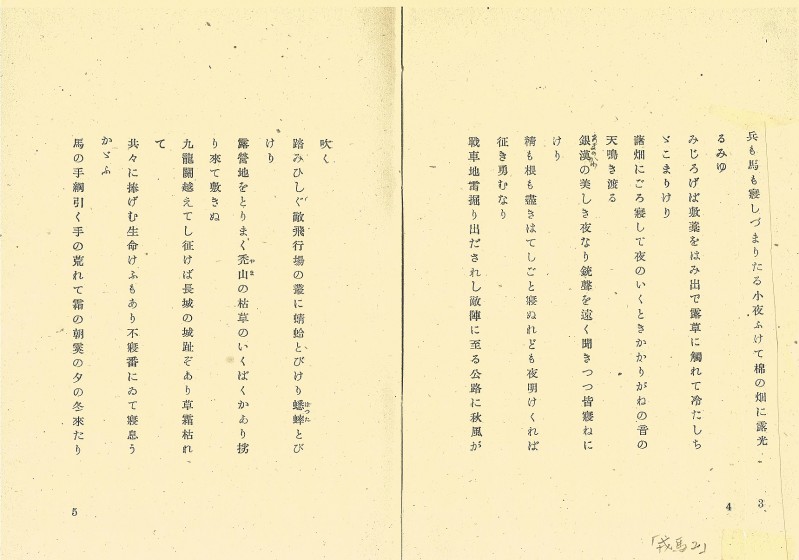 兵も馬も寢しづまりたる小夜ふけて棉の畑に露光
るみゆ
みじろげば敷藁をはみ出で露草に觸れて冷たしち
ゞこまりけり
藷畑にごろ寢して夜のいくときかかりがねの音の
天鳴き渡る
銀漢の美しき夜なり銃聲を遠く聞きつつ皆寢ねに
あまのがわ
けり
精も根も盡きはてしごと寢ぬれども夜明けくれば
征き勇むなり
戰車地雷掘り出だされし敵陣に至る公路に秋風が
3
4
「戎馬2」
吹く
踏みひしぐ敵飛行場の叢に蜻蛉とびけり蟋蟀とび
ばつた
けり
露營地をとりまく禿山の枯草のいくばくかあり捞
やま
り來て敷きぬ
九龍關越えてし征けば長城の城趾ぞあり草霜枯れ
て
共々に捧げむ生命けふもあり不寢番にゐて寢息う
かゞふ
馬の手綱引く手の荒れて霜の朝霙の夕の冬來たり
5